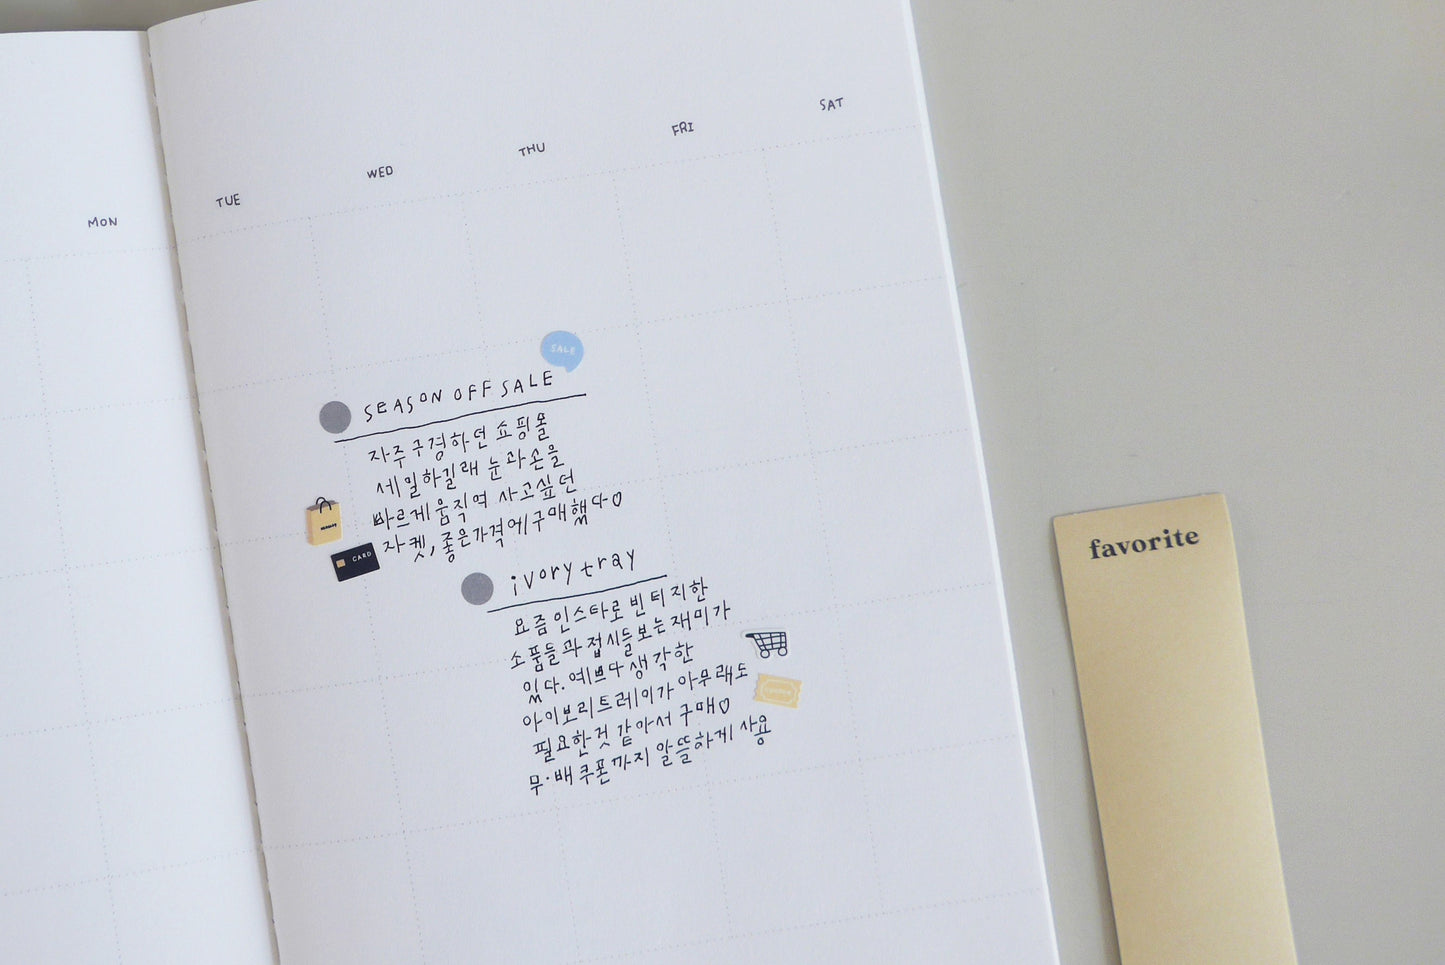 MON
TUE
WED
THU
FRI
SAT
SALE
SEASON OFF SALE
자주 구경하던 쇼핑몰
세일하길래 눈과 손을
바르게 움직여 사고싶던
자켓, 좋은가격에 구매했다♡
CARD
ivory tray
요즘 인스타로 빈티지한
소품들과 접시들 보는 재미가
있다. 예쁘다 생각한
아이보리트레이가 아무래도
필요한것 같아서 구매♡
무·배 쿠폰까지 알뜰하게 사용
favorite